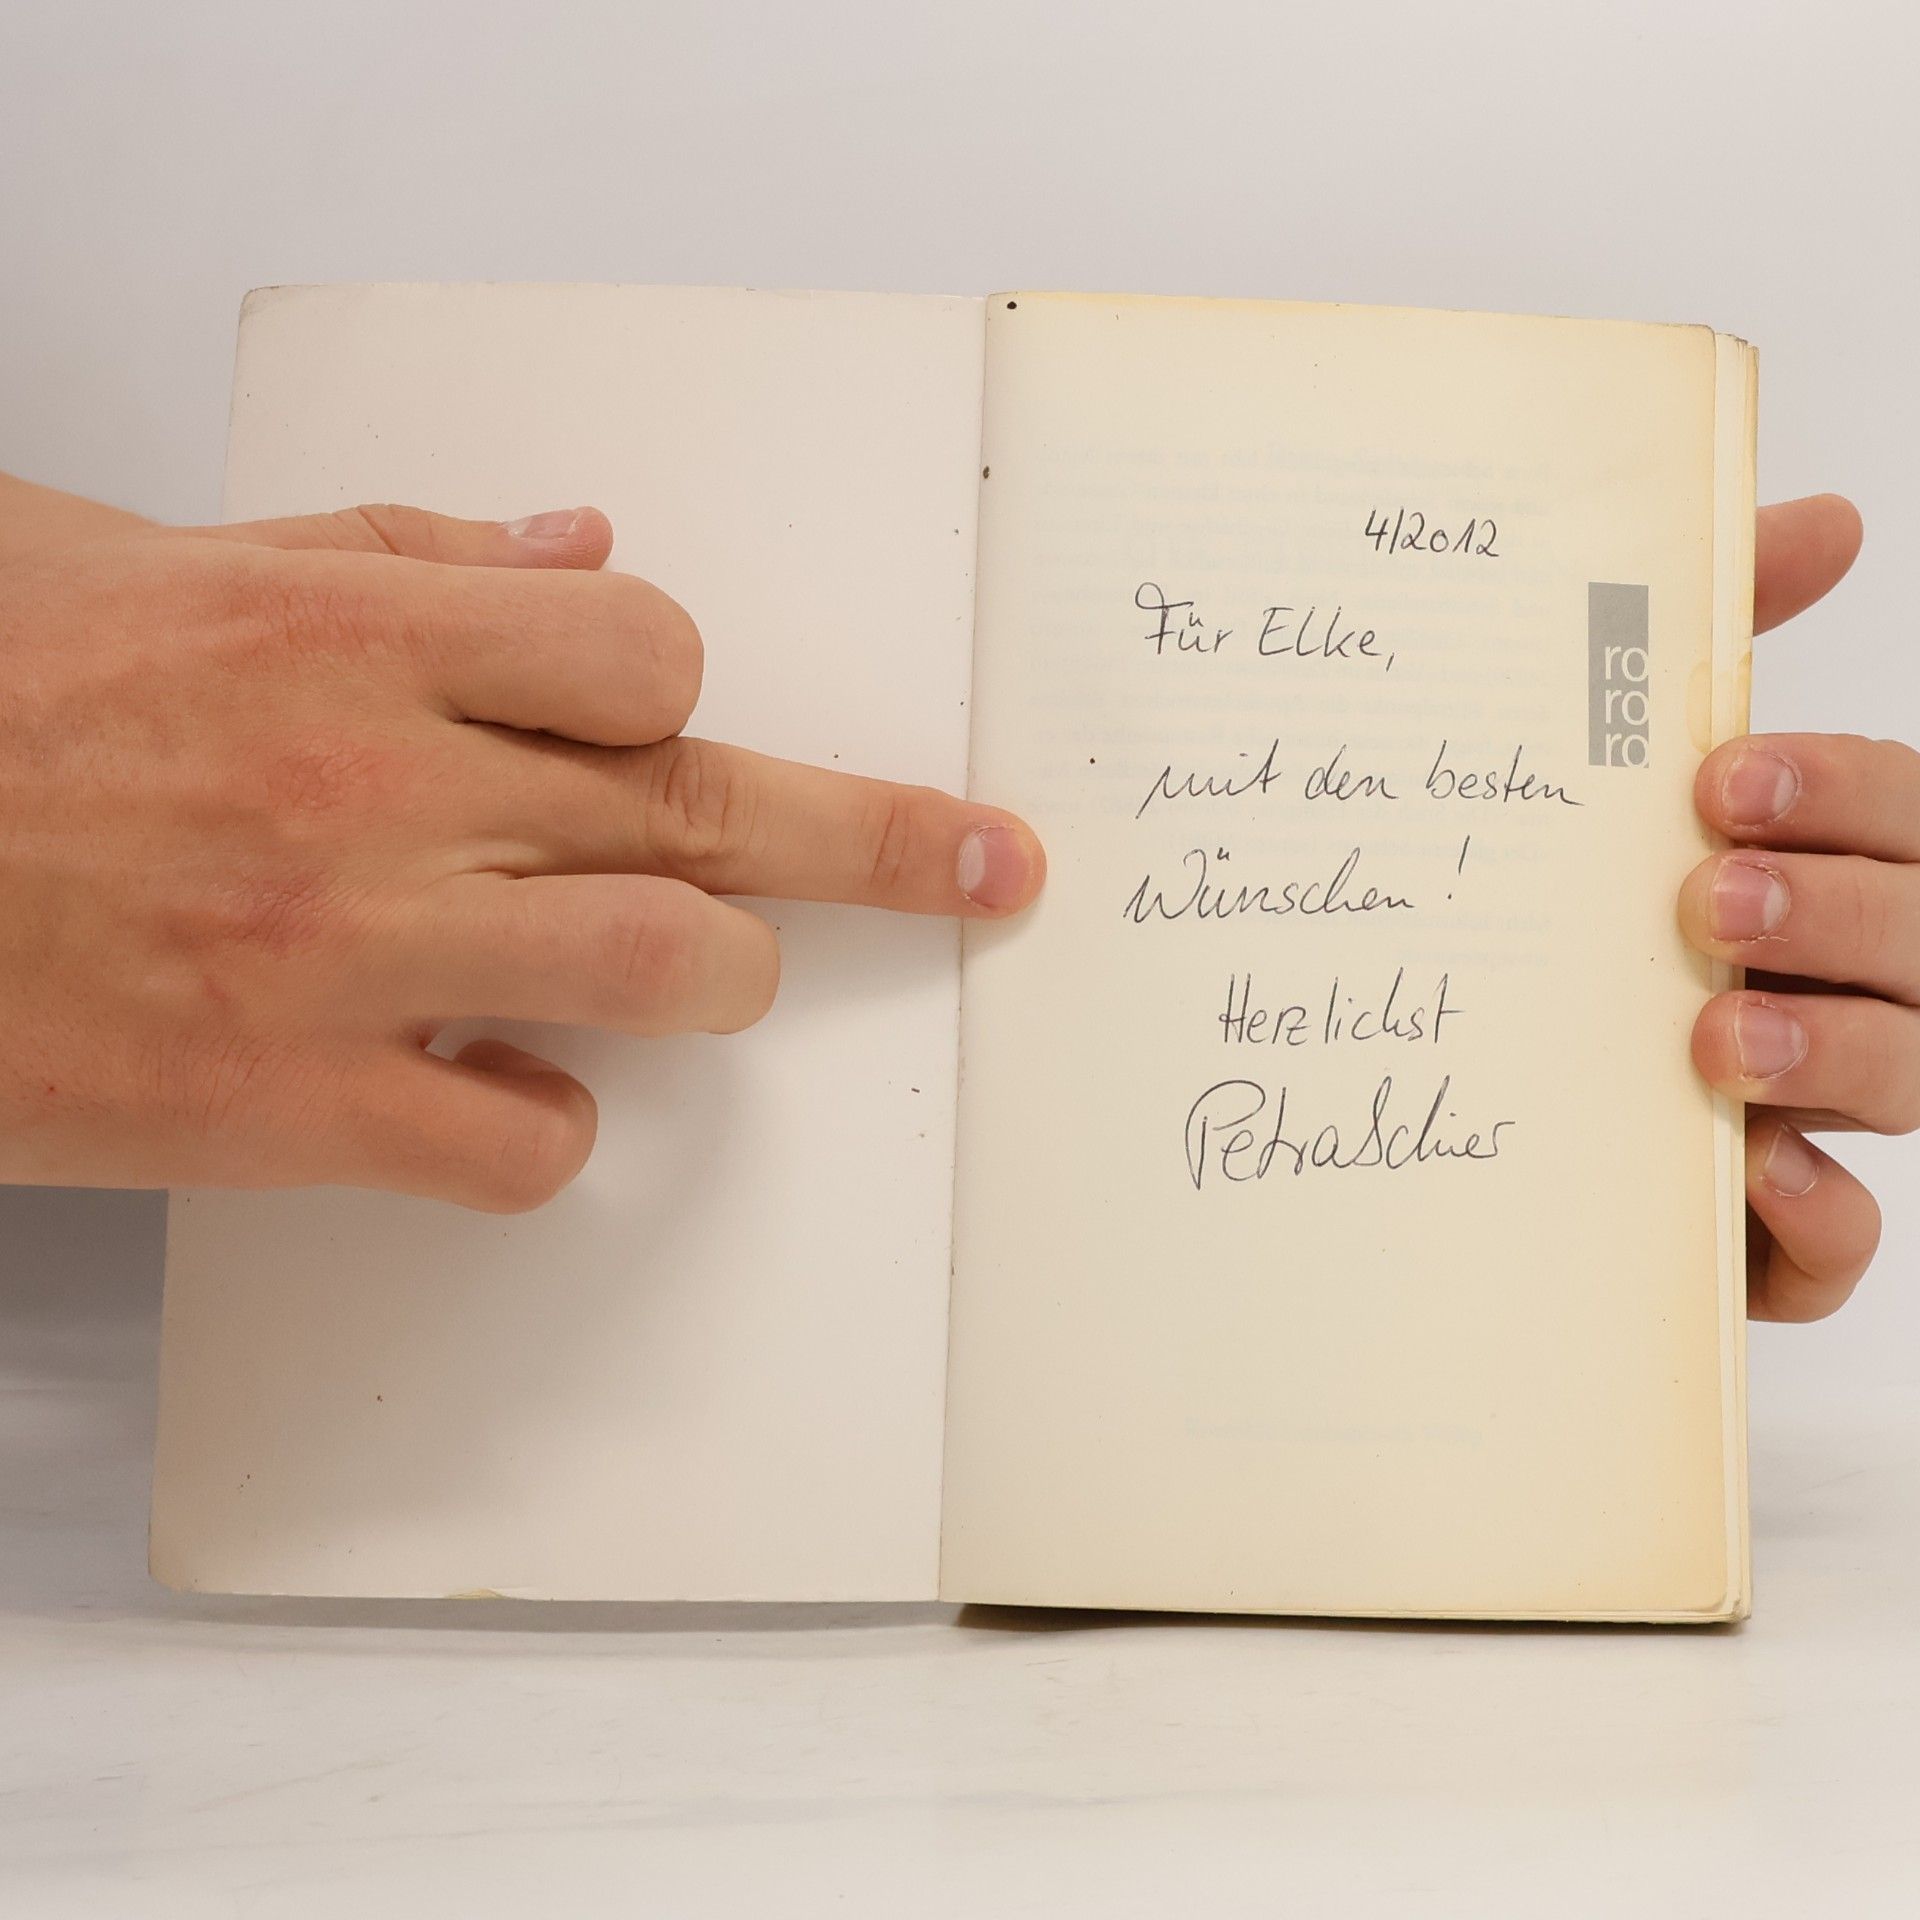 4/2012
Für Elke,
mit den besten
Wünschen!
Herzlichst
Petra Schier
ro
ro
ro